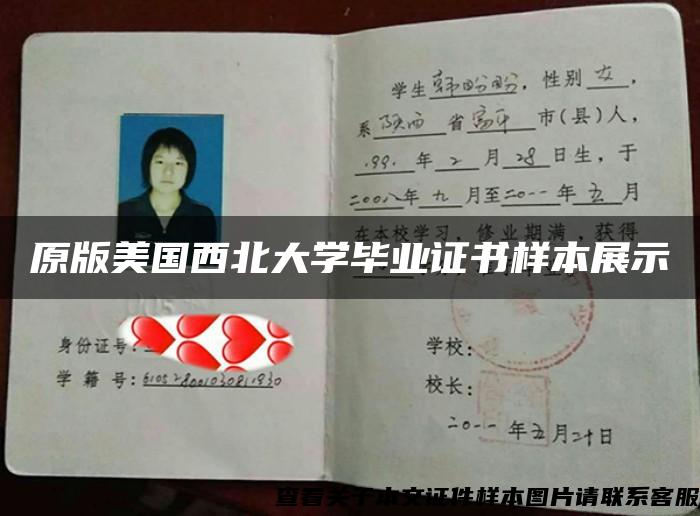 学生韩盼盼，性别女，
系陕西省富平市(县)人，
1991年2月28日生，于
二00八年九月至二0一一年五月
在本校学习，修业期满，获得
原版美国西北大学毕业证书样本展示
身份证号：
学籍号：
学校：
校长：
二0一一年五月二十日
查看关于本文证件样本图片请联系客服